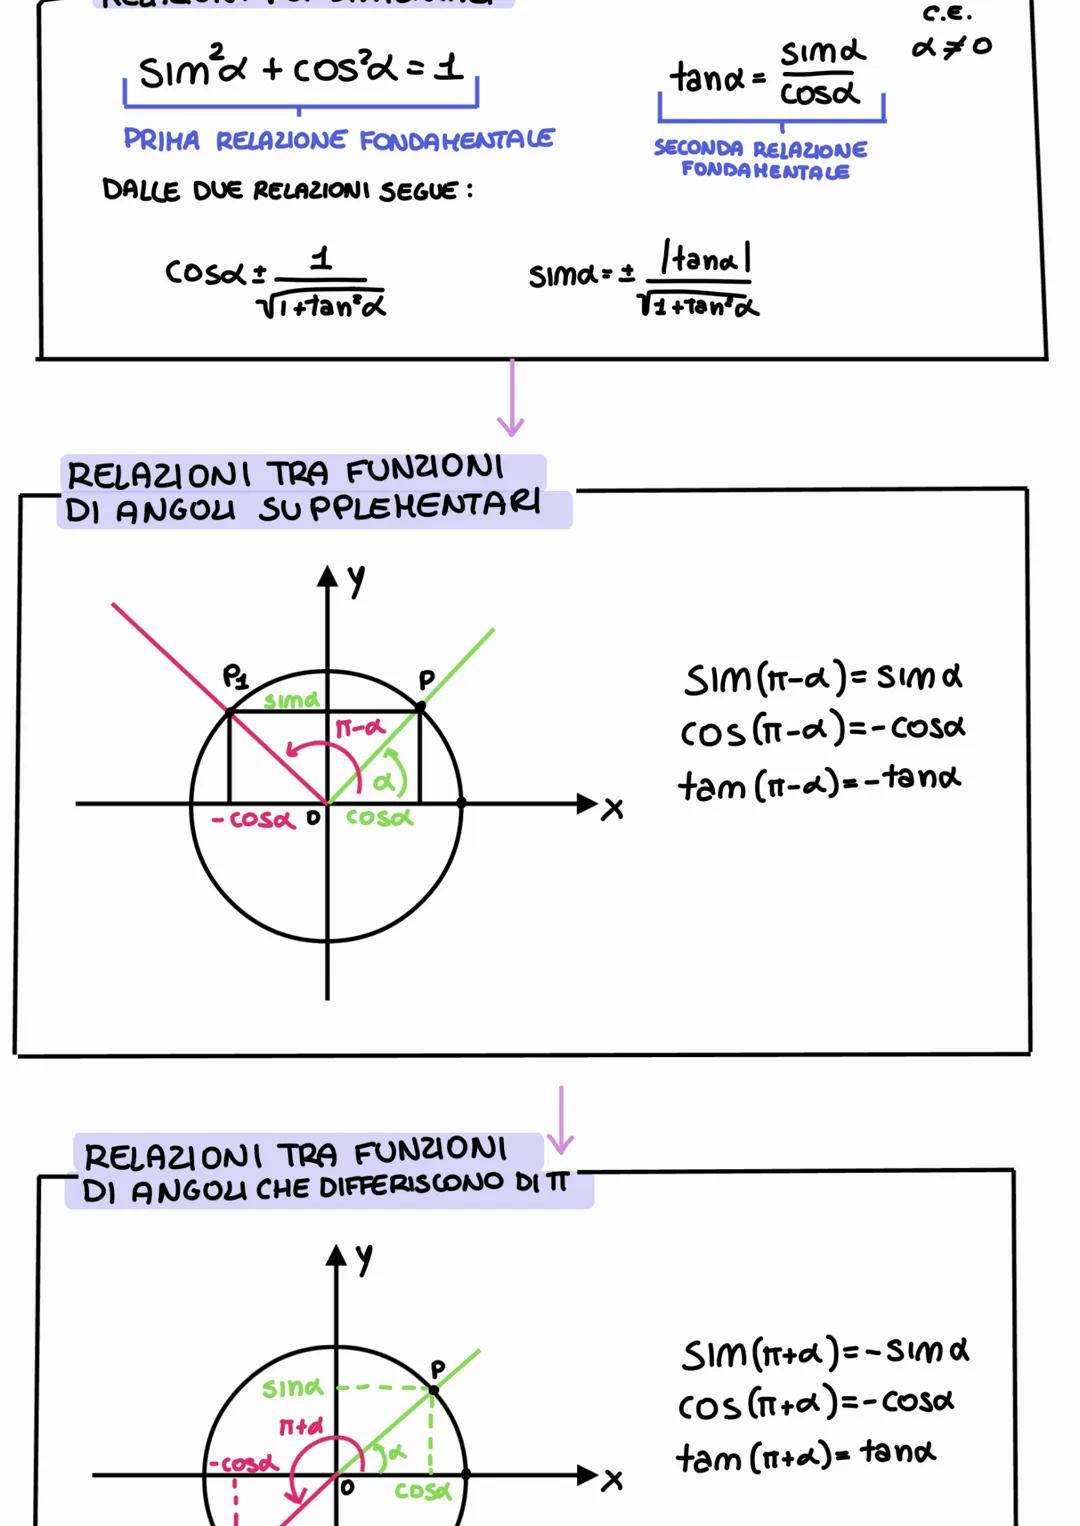 RELAZIONI FONDAMENTALI
C.E.
sin²α + cos²α = 1
tanα = sinα/cosα
α ≠ 0
PRIMA RELAZIONE FONDAMENTALE
SECONDA RELAZIONE
FONDAMENTALE
DALLE DUE RELAZIONI SEGUE:
cosα ± 1/√1+tan²α
sinα = ± |tanα|/√1+tan²α
RELAZIONI TRA FUNZIONI
DI ANGOLI SUPPLEMENTARI
y
P1
P
sinα
π-α
α
-cosα
O
cosα
x
sin(π-α)= sinα
cos(π-α)=-cosα
tan(π-α)=-tanα
RELAZIONI TRA FUNZIONI
DI ANGOLI CHE DIFFERISCONO DI π
y
P
sinα
π+α
α
-cosα
O
cosα
x
sin(π+α)=-sinα
cos(π+α)=-cosα
tan(π+α)= tanα